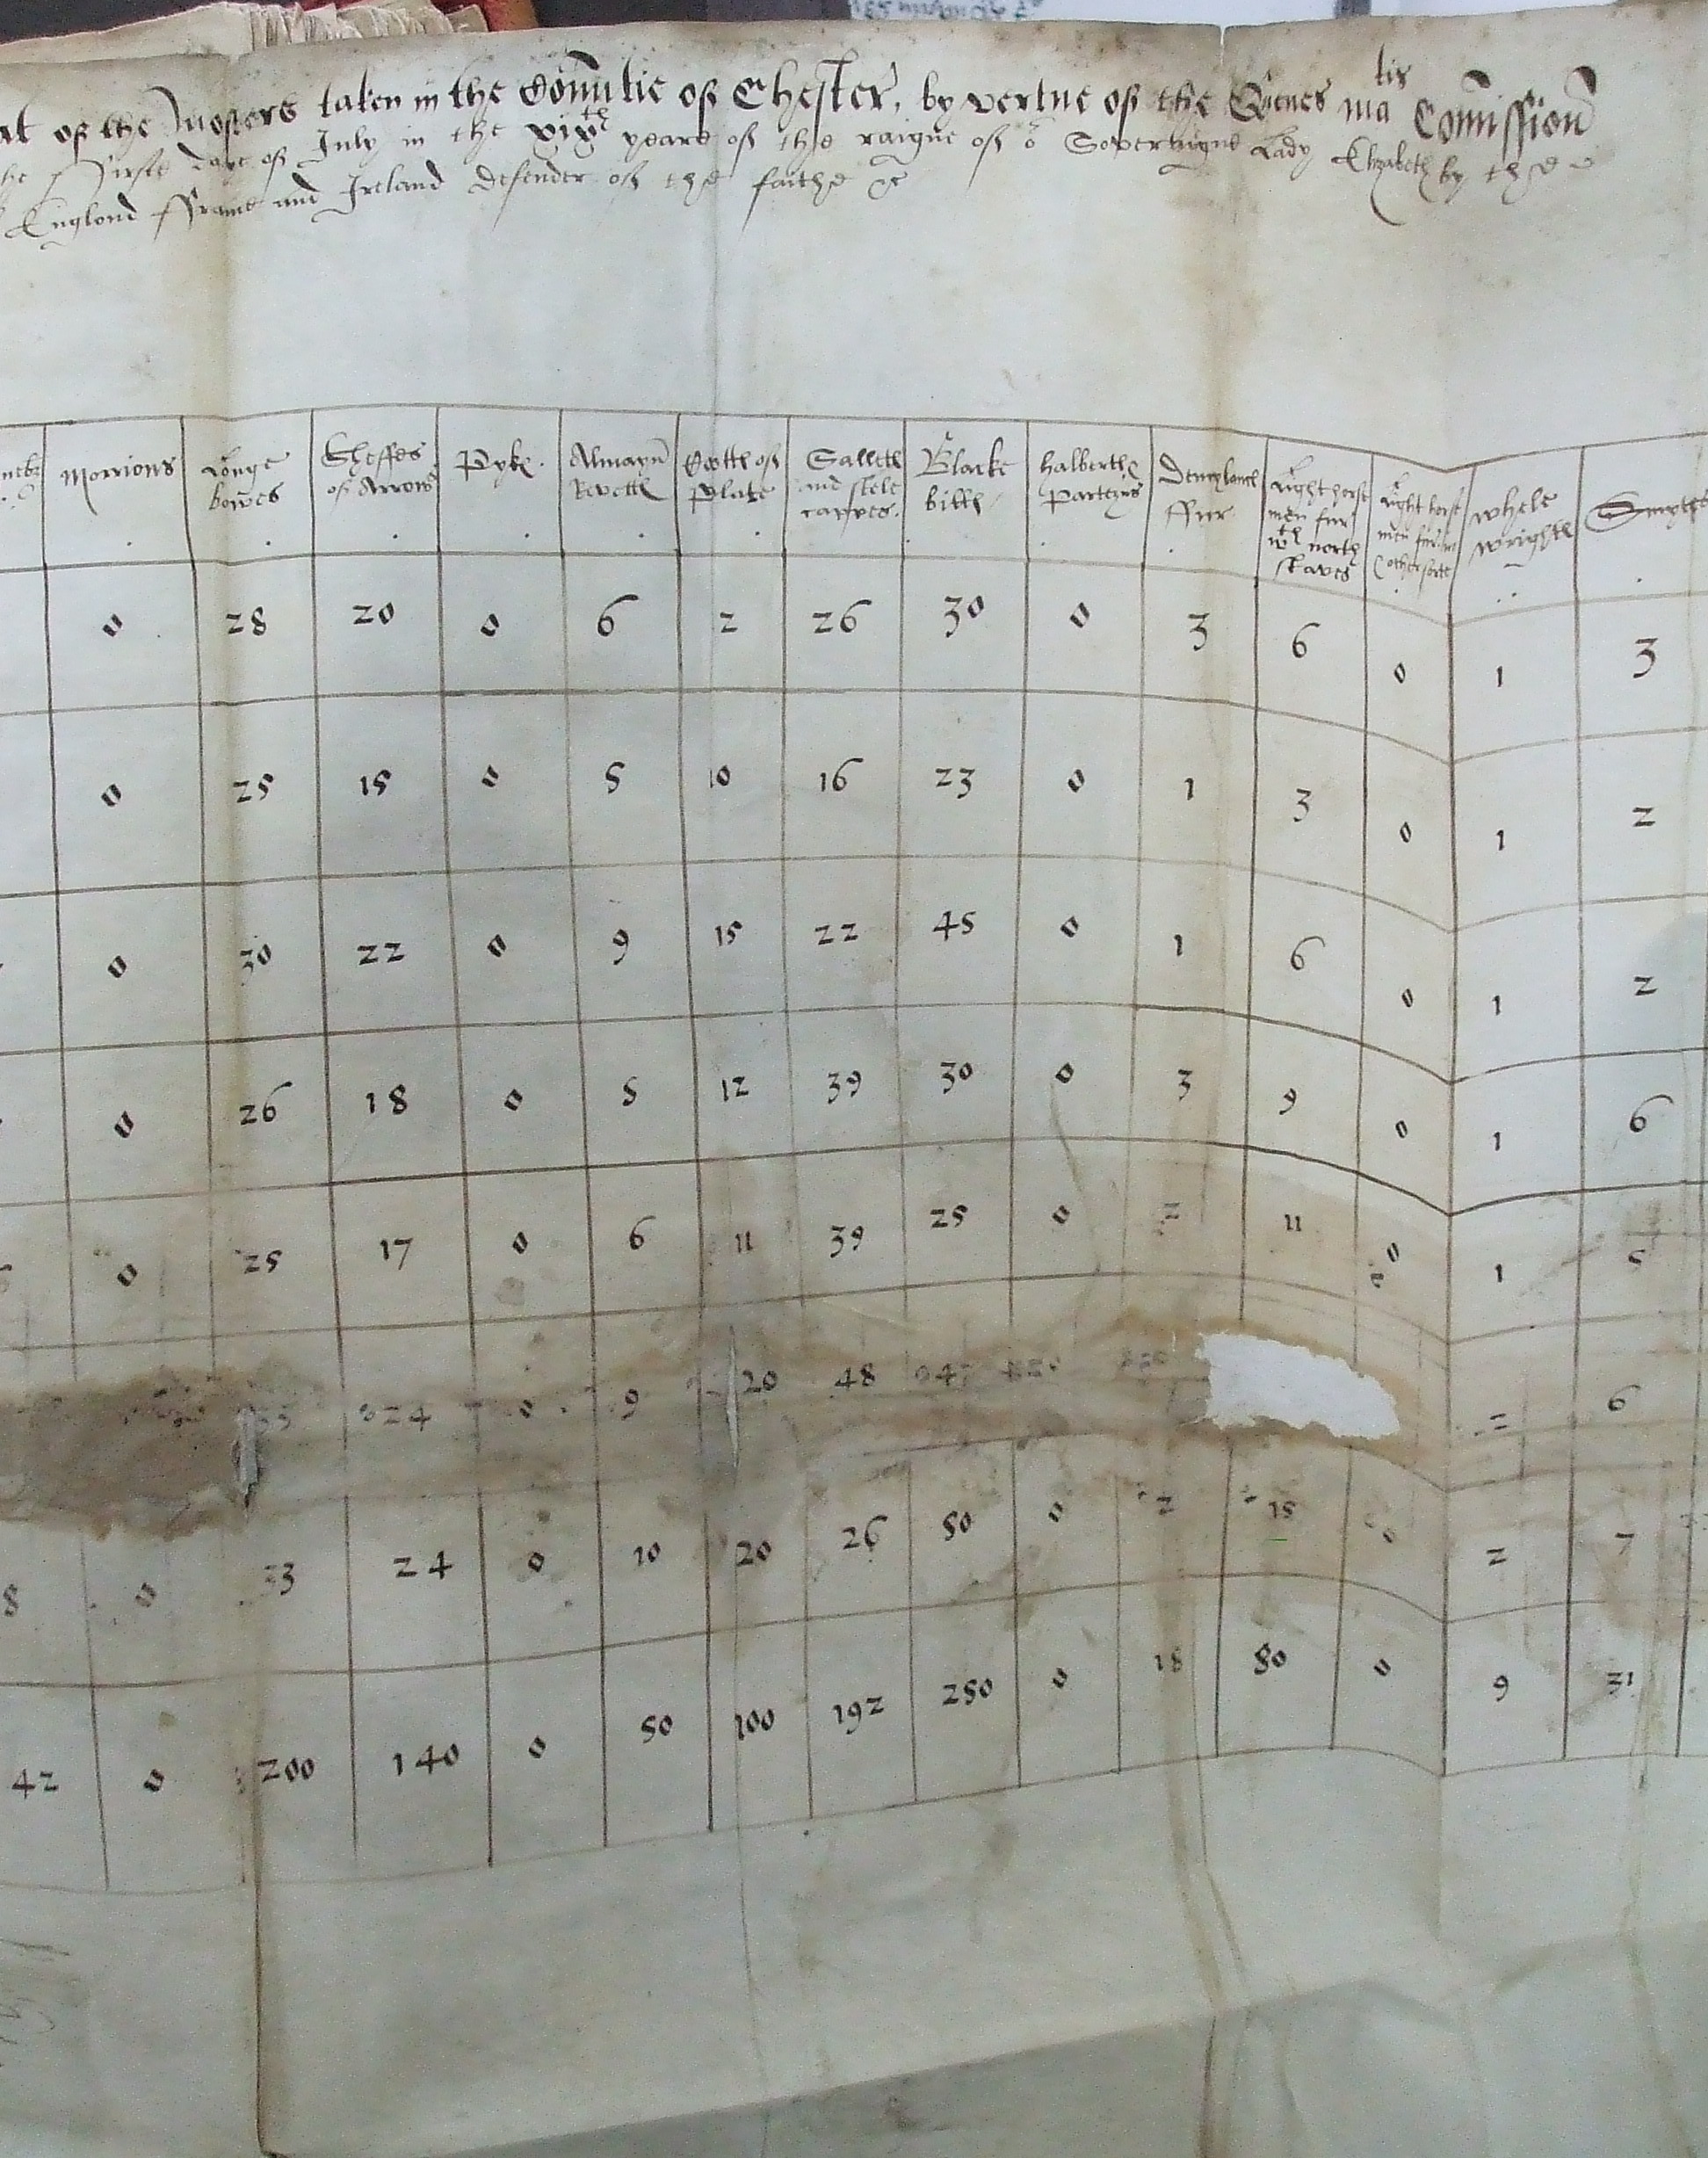 of the Mosters taken in the Countie of Chester, by vertue of the Quenes ma tis Comission
Firste daye of July in the xixth yeare of the raigne of or Soveraigne Lady Elizabeth by the
England ffraunce and Ireland defender of the faithe &c
Morrions | Longe bowes | Sheffes of Arrows | Pyke | Almayn Revetts | Cootts of Plate | Salletts and stele cappes | Blacke bills | halberths Partezins | Demylances ffur | Light horse men fur wth north staves | Light horse men fur in other sorte | whele wrights | Smythes
0 | 28 | 20 | 0 | 6 | 2 | 26 | 30 | 0 | 3 | 6 | 0 | 1 | 3
0 | 25 | 15 | 0 | 5 | 10 | 16 | 23 | 0 | 1 | 3 | 0 | 1 | 2
0 | 30 | 22 | 0 | 9 | 15 | 22 | 45 | 0 | 1 | 6 | 0 | 1 | 2
0 | 26 | 18 | 0 | 5 | 12 | 39 | 30 | 0 | 3 | 9 | 0 | 1 | 6
0 | 25 | 17 | 0 | 6 | 11 | 39 | 25 | 0 | 2 | 11 | 0 | 1 | 5
33 | 24 | 0 | 9 | 20 | 48 | 47 | 2 | 6
8 | 0 | 33 | 24 | 0 | 10 | 20 | 26 | 50 | 0 | 2 | 15 | 0 | 2 | 7
42 | 0 | 200 | 140 | 0 | 50 | 100 | 192 | 250 | 0 | 18 | 80 | 0 | 9 | 31